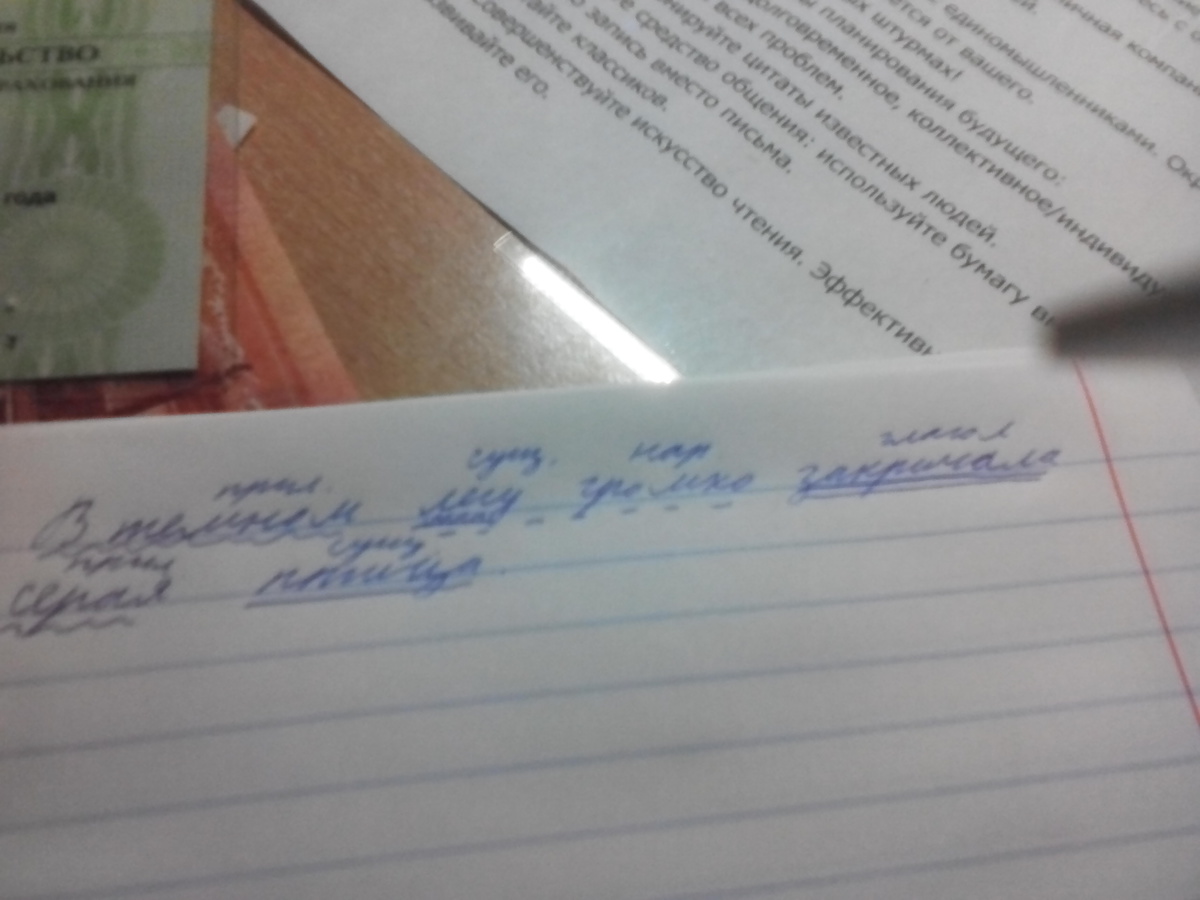 ЬСТВО
РАХОВАНИЯ
года
единомышленниками. Окр
ется от вашего.
х штурмах!
ы планирования будущего:
долговременное, коллективное/индивиду
всех проблем.
нируйте цитаты известных людей.
е средство общения: используйте бумагу вм
о запись вместо письма.
тайте классиков.
совершенствуйте искусство чтения. Эффективн
звивайте его.
прил. сущ. нар глагол
В темном лесу громко закричала
прил сущ
серая птица.